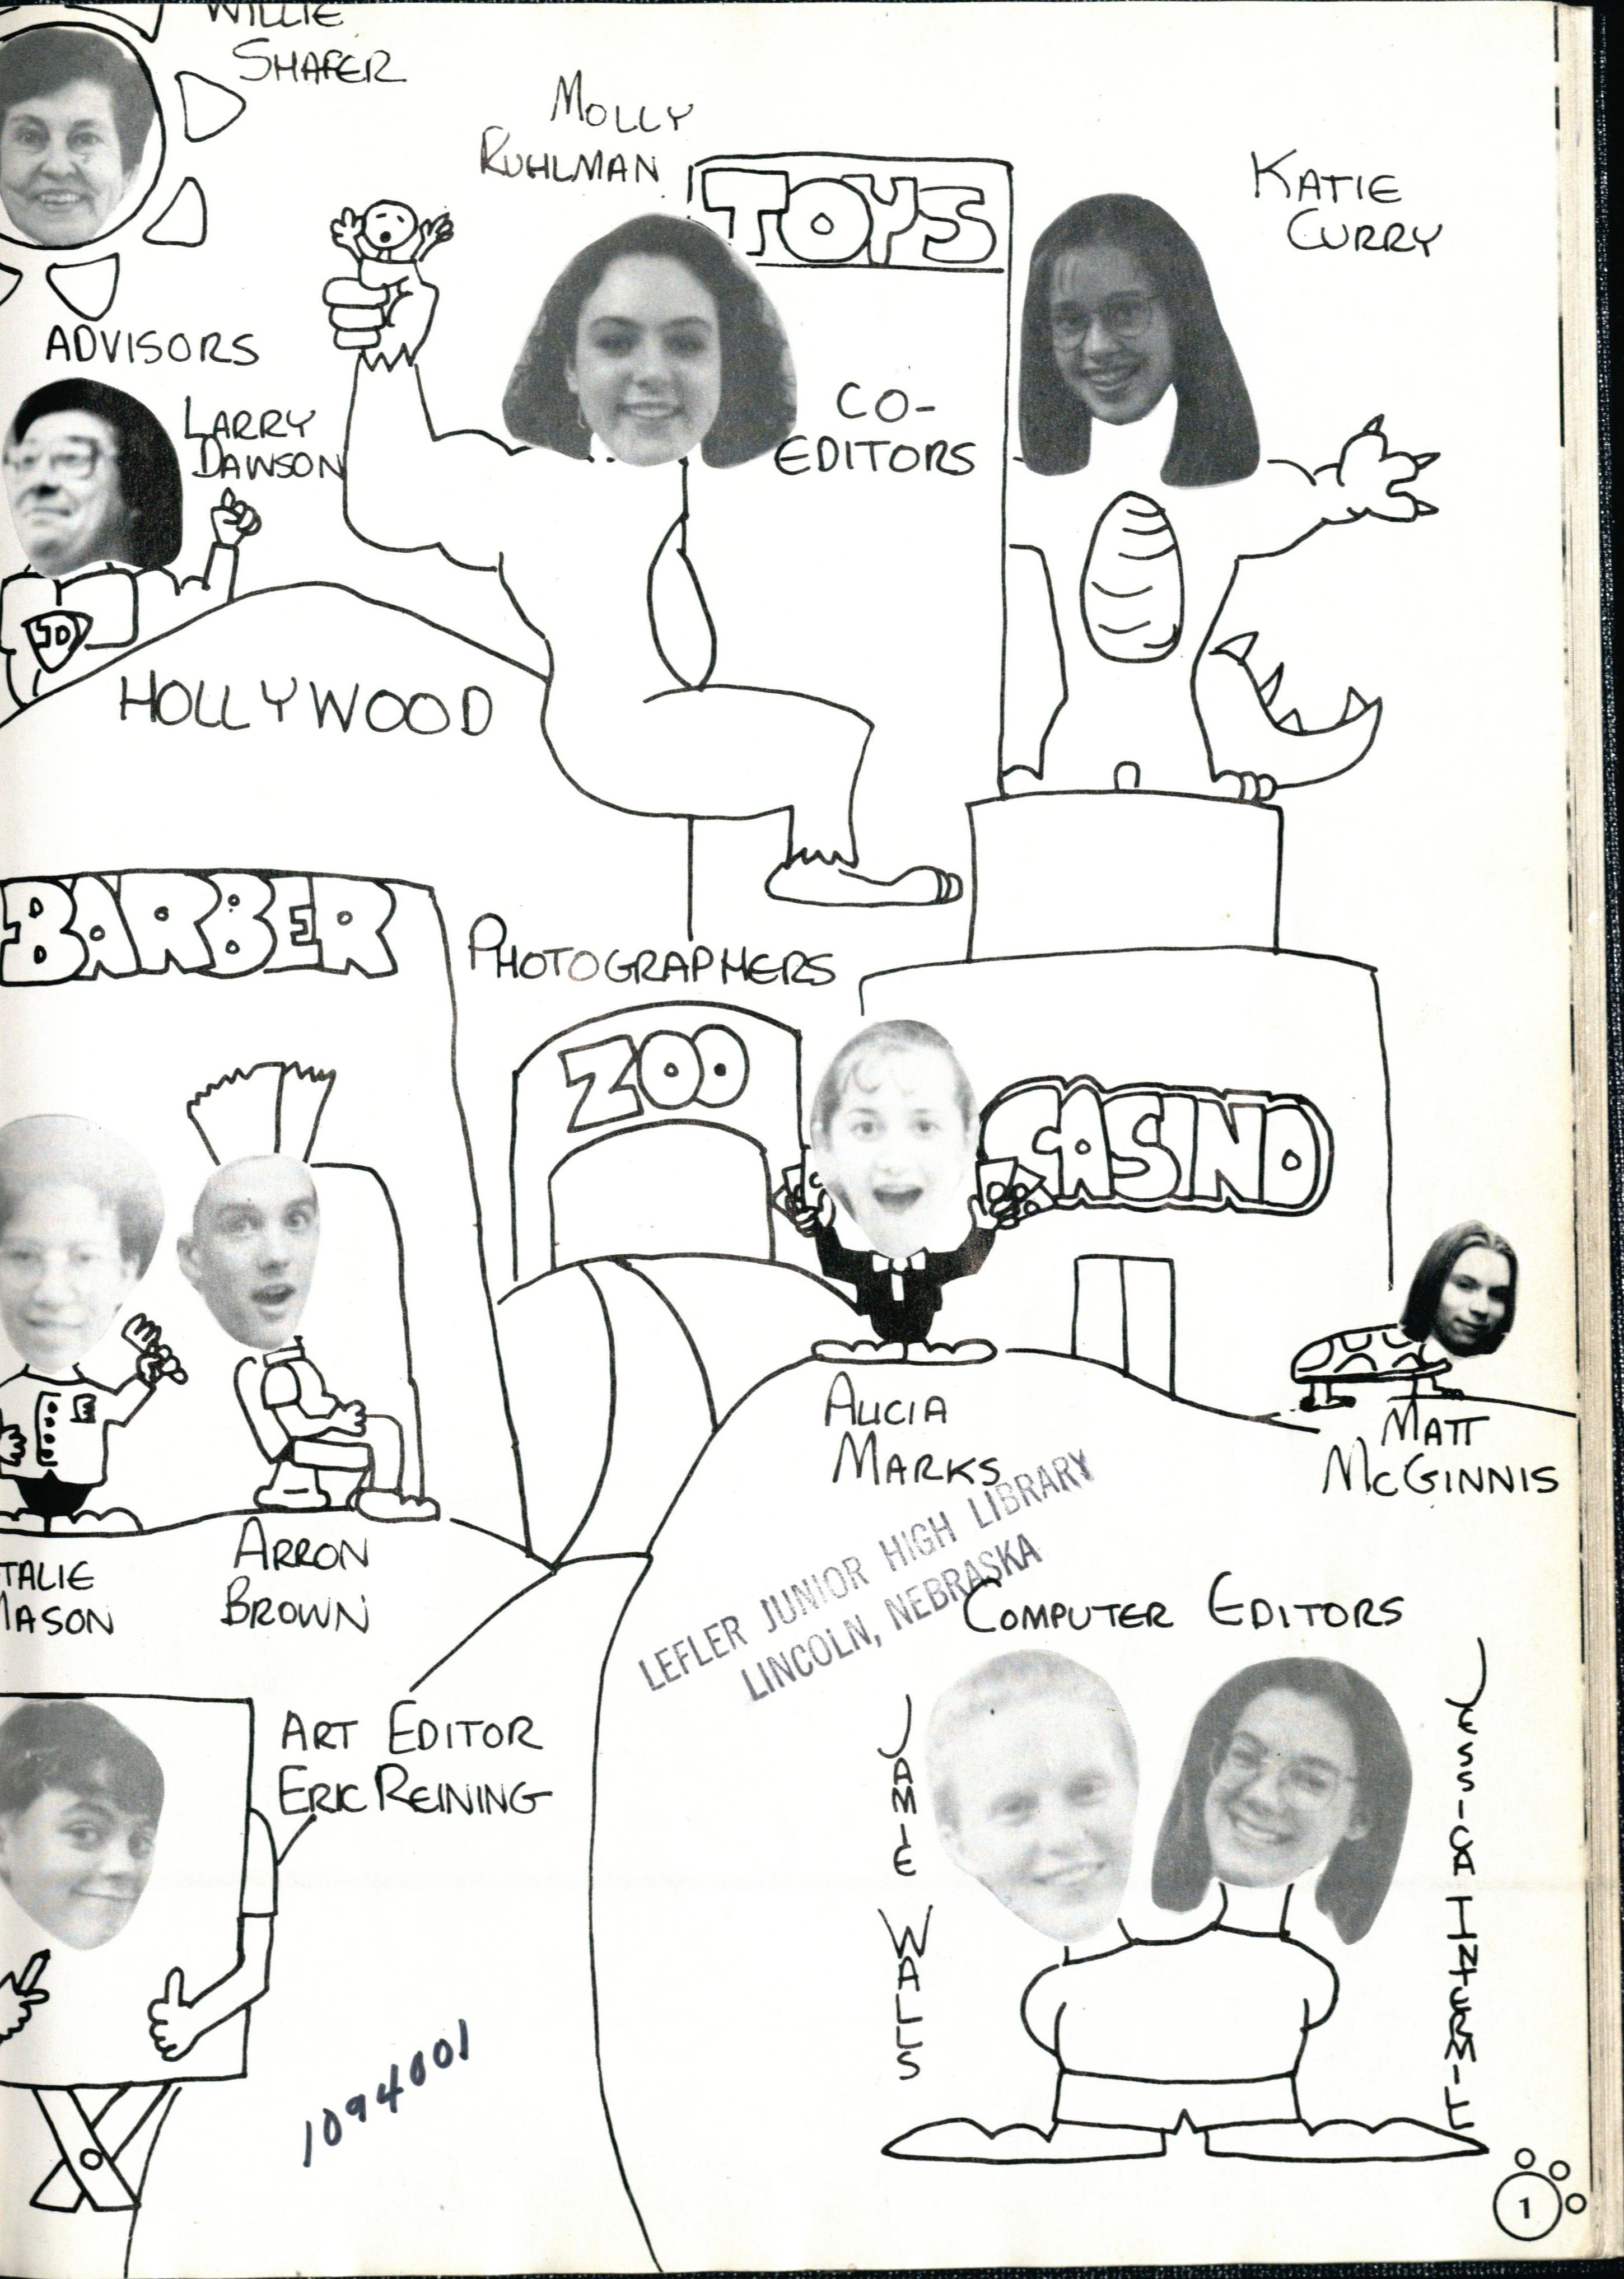 WILLIE
SHAFER
MOLLY
RUHLMAN
TOYS
KATIE
CURRY
ADVISORS
LARRY
DAWSON
CO-
EDITORS
JD
HOLLYWOOD
BARBER
PHOTOGRAPHERS
ZOO
CASINO
ALICIA
MARKS
MATT
McGINNIS
TALIE
MASON
ARRON
BROWN
LEFLER JUNIOR HIGH LIBRARY
LINCOLN, NEBRASKA
COMPUTER EDITORS
ART EDITOR
ERIC REINING
JAMIE WALLS
JESSICA
1094001
1